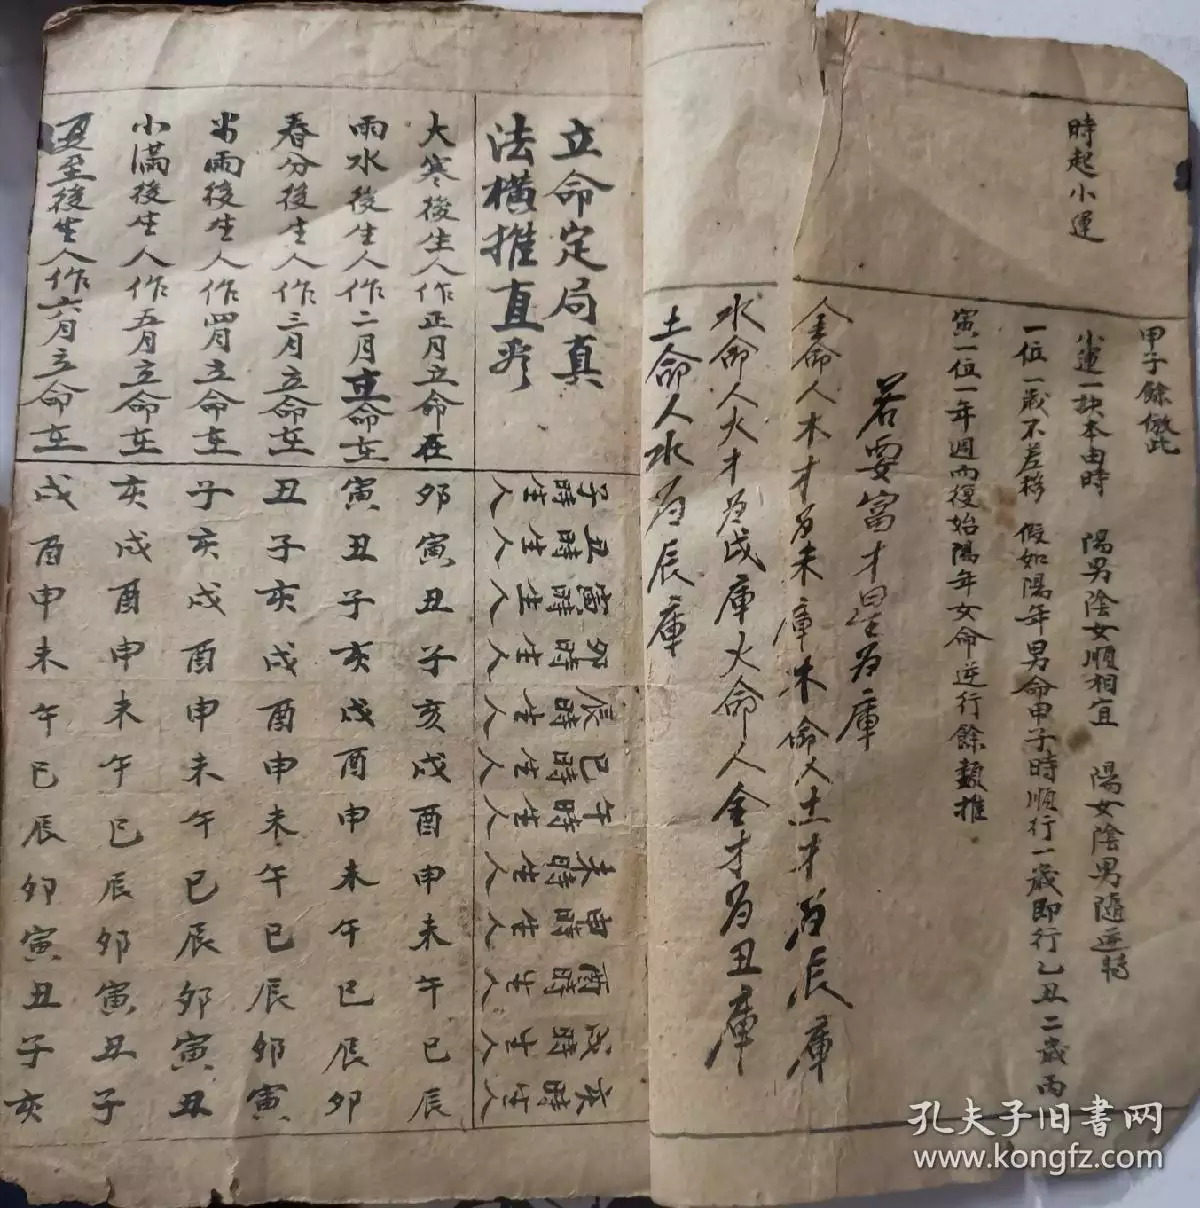 時起小運
甲子餘倣此
小運一訣本由時 陽男陰女順相宜 陽女陰男隨逆轉
一位一歲不差移 假如陽年男命甲子時順行一歲即行乙丑二歲丙
寅一位一年週而復始陽年女命逆行餘類推
若要富才星為庫
金命人木才為未庫木命人土才為辰庫
水命人火才為戌庫火命人金才為丑庫
土命人水為辰庫
立命定局真
法橫推直
子時生人
丑時生人
寅時生人
卯時生人
辰時生人
巳時生人
午時生人
未時生人
申時生人
酉時生人
戌時生人
亥時生人
大寒後生人作正月立命在 卯寅丑子亥戌酉申未午巳辰
雨水後生人作二月立命在 寅丑子亥戌酉申未午巳辰卯
春分後生人作三月立命在 丑子亥戌酉申未午巳辰卯寅
谷雨後生人作四月立命在 子亥戌酉申未午巳辰卯寅丑
小滿後生人作五月立命在 亥戌酉申未午巳辰卯寅丑子
夏至後生人作六月立命在 戌酉申未午巳辰卯寅丑子亥
孔夫子旧书网
www.kongfz.com